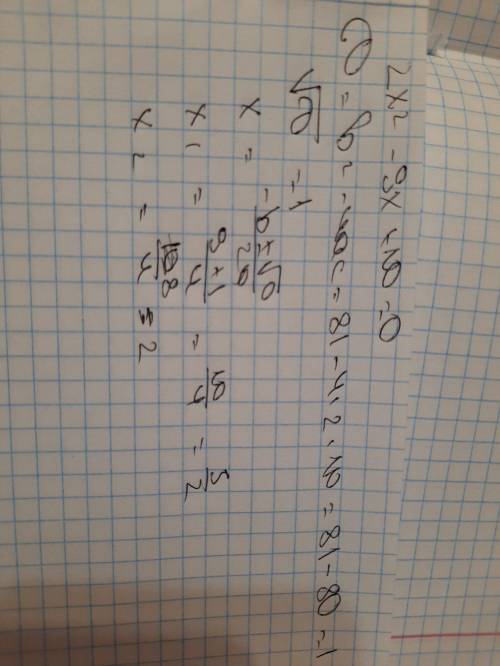 2x² - 9x + 10 = 0
D = b² - 4ac = 81 - 4·2·10 = 81 - 80 = 1
√D = 1
x = (-b ± √D)/2a
x₁ = (9+1)/4 = 10/4 = 5/2
x₂ = 8/4 = 2